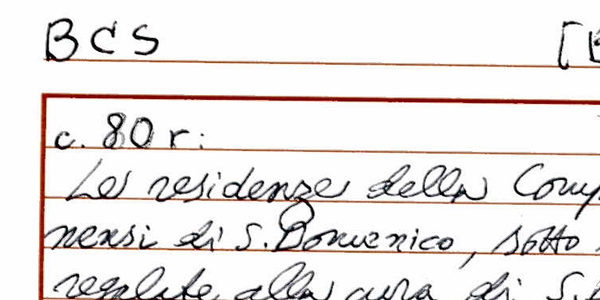 BCS [B
c. 80 r:
Le residenze della Comp
nensi di S. Domenico, sotto
regolate alla cura di S.